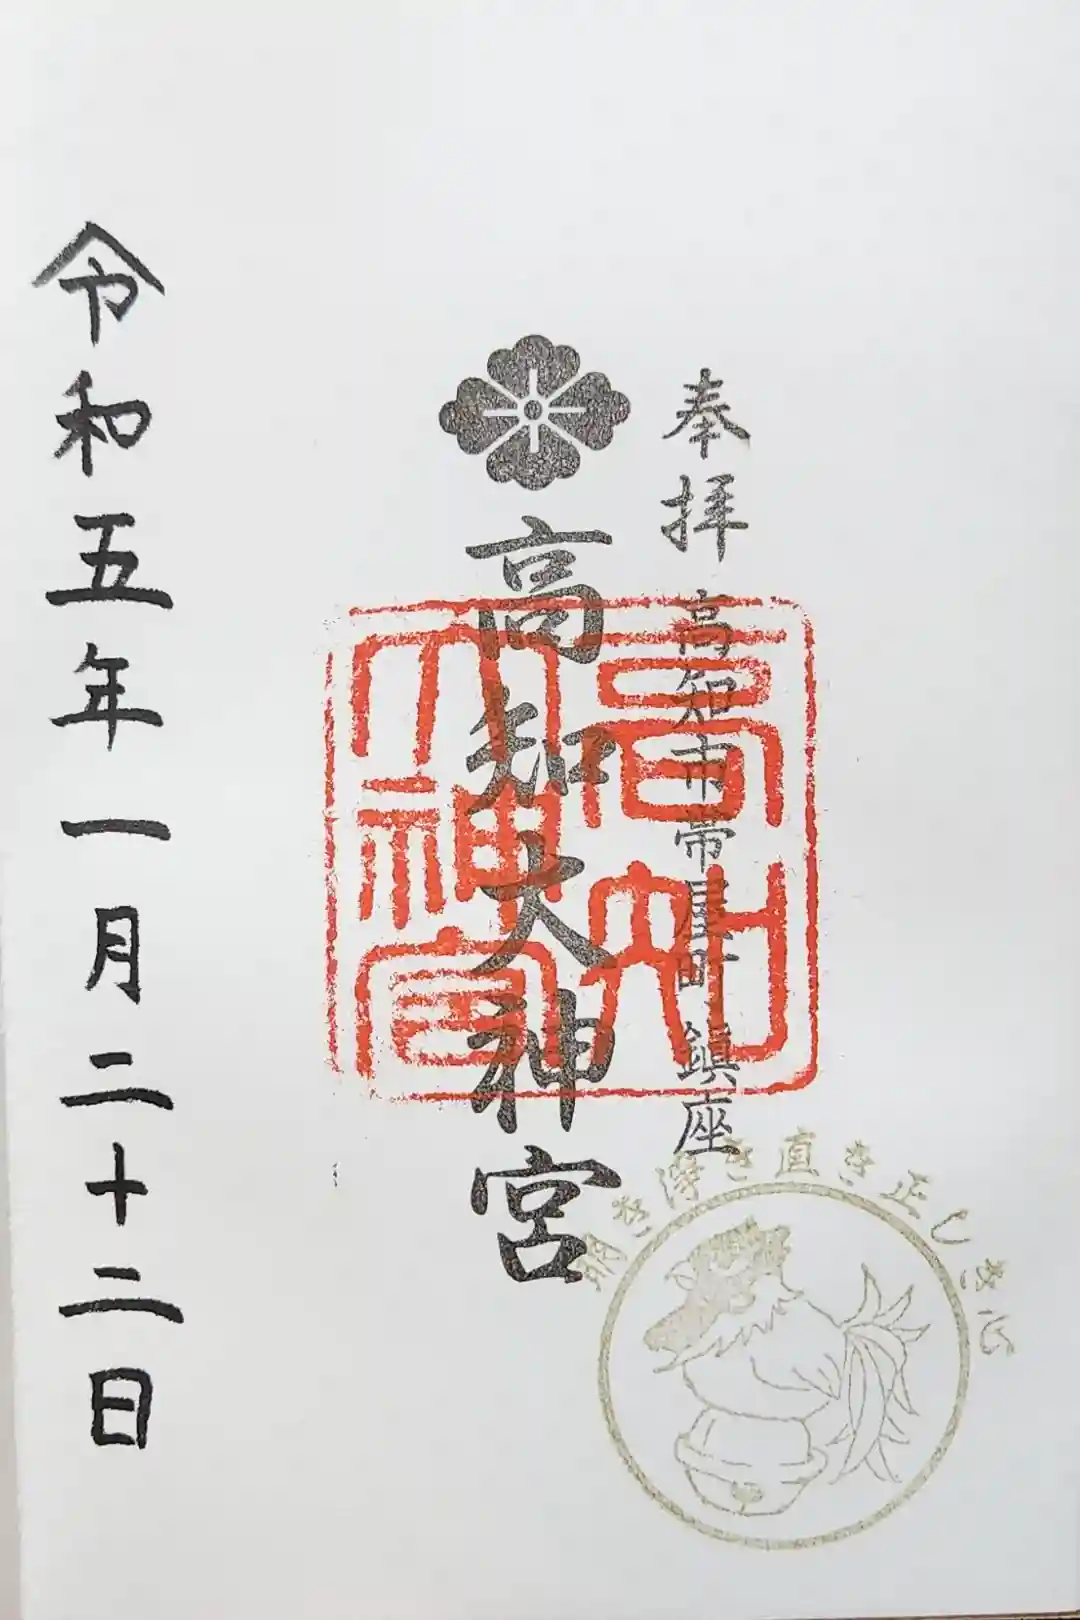 奉拝 高知市帯屋町鎮座
高知大神宮
高知
大神宮
令和五年一月二十二日
明き浄き直き正しき心